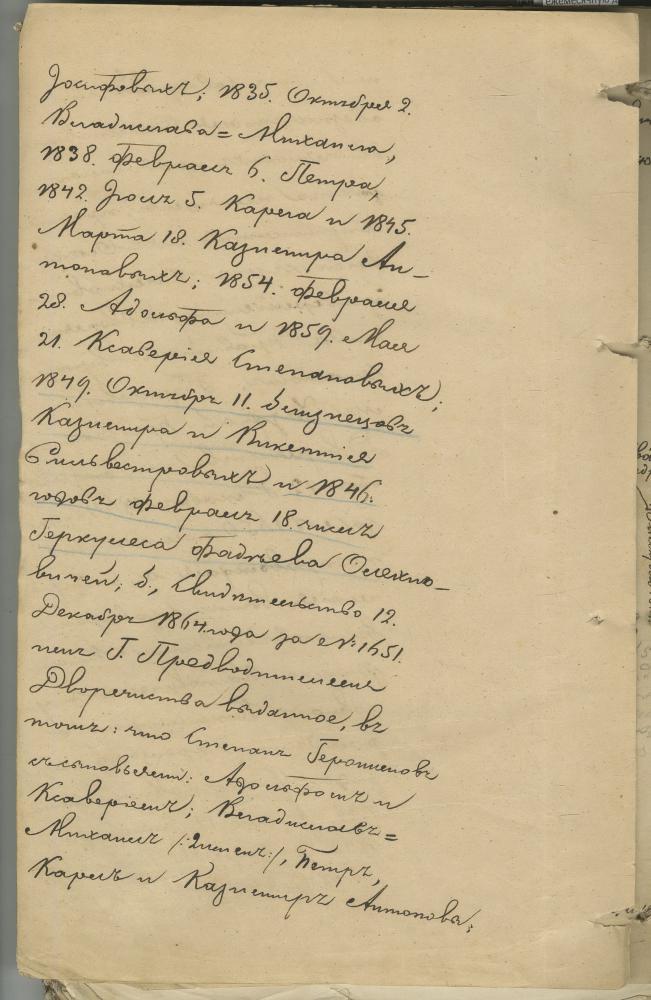 Іосифовыхъ; 1835. Октября 2.
Владислава=Михаила,
1838. Февраля 6. Петра,
1842. Іюля 5. Карла и 1845.
Марта 18. Казимира Ан-
тоновыхъ; 1854. Февраля
28. Адольфа и 1859. Мая
21. Ксаверія Степановыхъ;
1849. Октября 11. близнецовъ
Казимира и Викентія
Сильвестровыхъ и 1846.
годовъ Февраля 18. числъ
Геркулеса Фадѣева Олехно-
вичей; 5., Свидѣтельство 12.
Декабря 1864. года за №: 1651.
Г. Предводителемъ
Дворянства выданное, въ
томъ: что Степанъ Геронимовъ
съ сыновьями: Адольфомъ и
Ксаверіемъ; Владиславъ=
Михаилъ /:2 именъ:/, Петръ,
Карлъ и Казимиръ Антоновы;